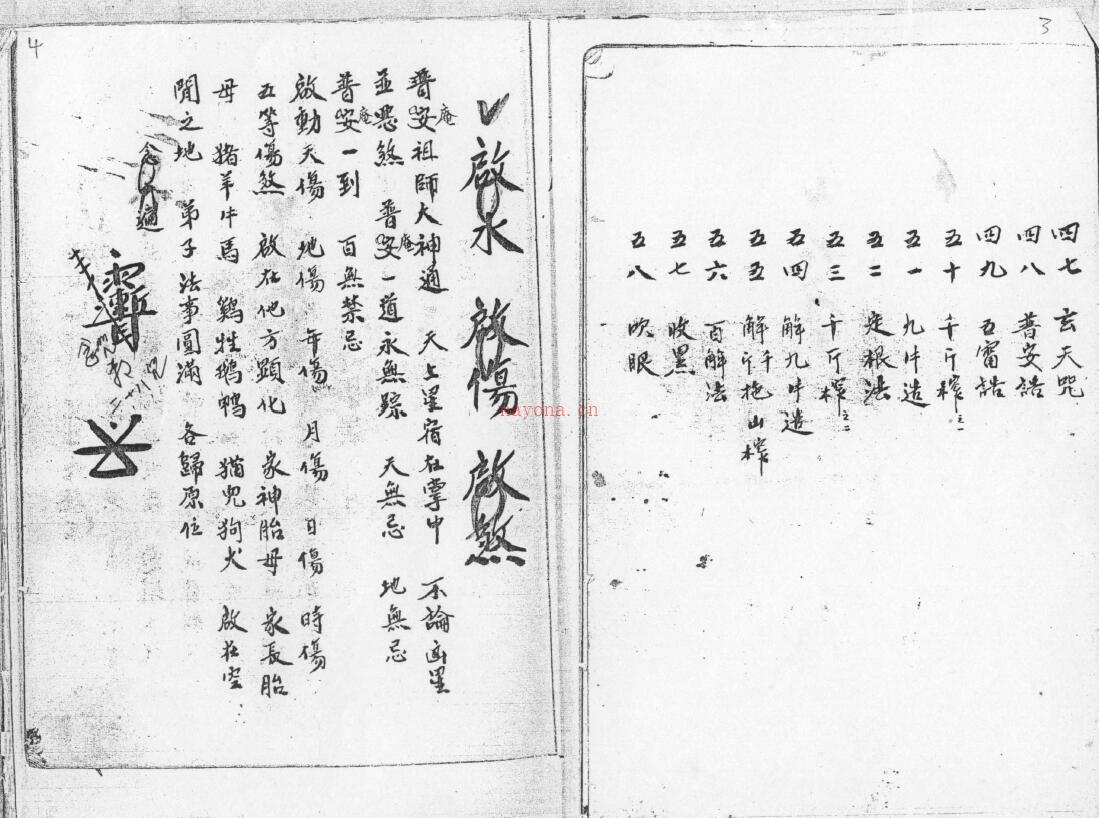 3
四七 玄天咒
四八 普安誥
四九 五雷誥
五十 千斤榨之一
五一 九牛造
五二 定根法
五三 千斤榨之二
五四 解九牛造
五五 解千斤拖山榨
五六 百解法
五七 收黑
五八 吹眼
4
啟水 啟傷 啟煞
普安庵祖師大神通 天上星宿在掌中 不論凶星
並惡煞 普安庵一道永無踪 天無忌 地無忌
普安庵一到 百無禁忌
啟動天傷 地傷 年傷 月傷 日傷 時傷
五等傷煞 啟在他方顯化 家神胎母 家長胎
母 猪羊牛馬 鷄牲鵝鸭 猫兒狗犬 啟在空
閒之地 弟子法事圓滿 各歸原位
nayona.cn